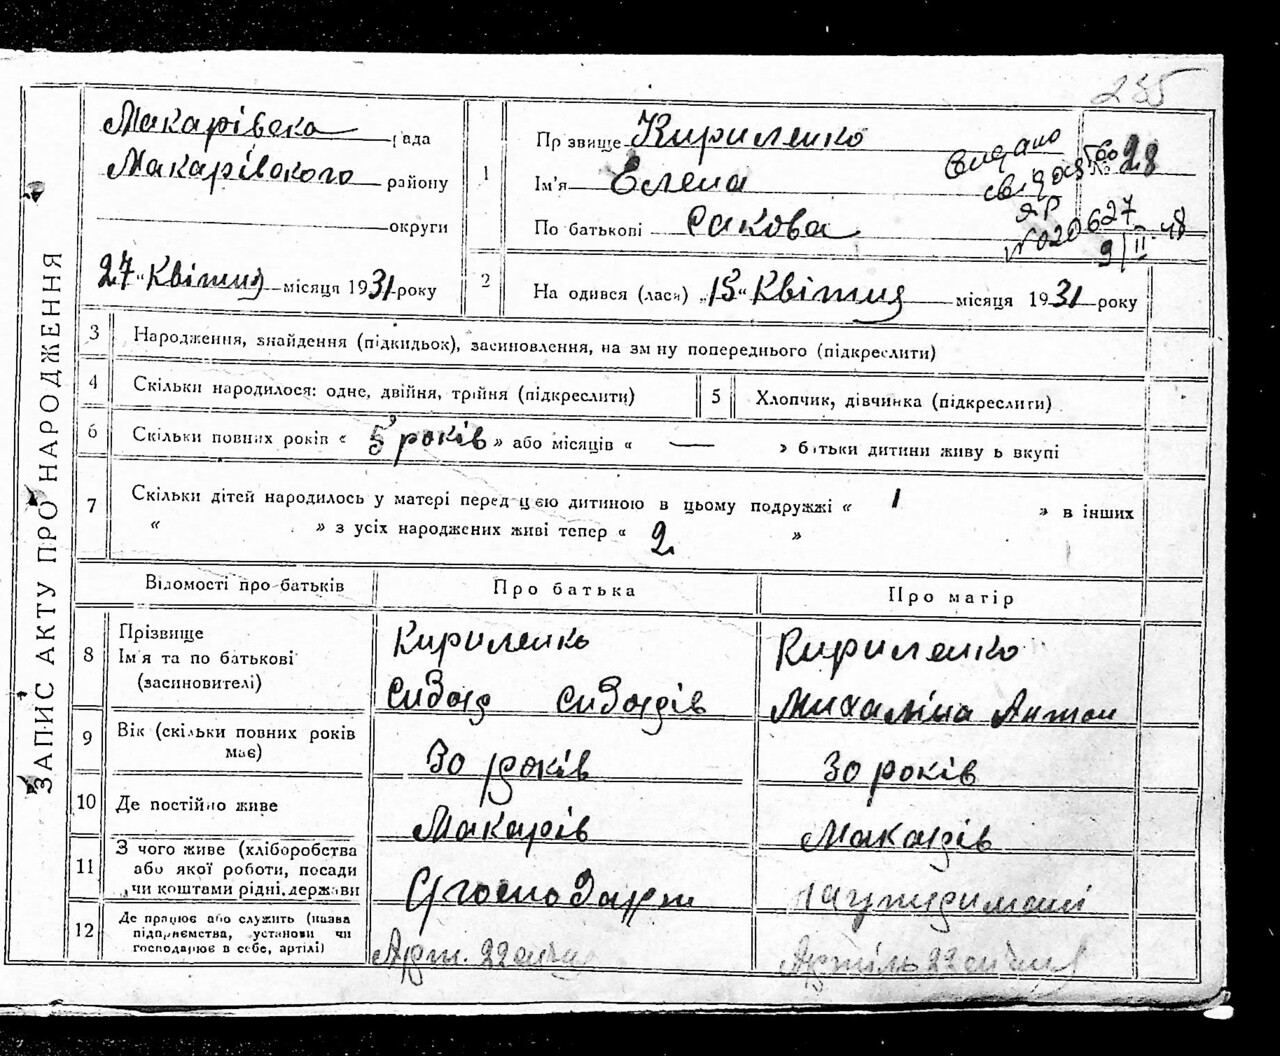 255
ЗАПИС АКТУ ПРО НАРОДЖЕННЯ
Макарівська рада
Макарівського району
округи
27 "Квітня місяця 1931 року
1
Прізвище Кириленко
Ім'я Елена
По батькові
видано
свідоцтво
ЯР
№020627
9/II-48
№ 28
2
На одився (лася) „15" Квітня місяця 1931 року
3 Народження, знайдення (підкидьок), засиновлення, на зм ну попереднього (підкреслити)
4 Скільки народилося: одне, двійня, трійня (підкреслити)
5 Хлопчик, дівчинка (підкреслити)
6 Скільки повних років « 5 років » або місяців « — » батьки дитини живу ь вкупі
7 Скільки дітей народилось у матері перед цією дитиною в цьому подружжі « 1 » в інших
« » з усіх народжених живі тепер « 2 »
Відомості про батьків Про батька Про матір
8 Прізвище
Ім'я та по батькові
(засиновителі)
Кириленко
Кириленко
Михаліна Антон
9 Вік (скільки повних років
має)
30 років
30 років
10 Де постійно живе Макарів Макарів
11 З чого живе (хліборобства
або якої роботи, посади
чи коштами рідні, держави
12 Де працює або служить (назва
підприємства, установи чи
господарює в себе, артілі)
Арт. 22 січня
Артіль 22 січня